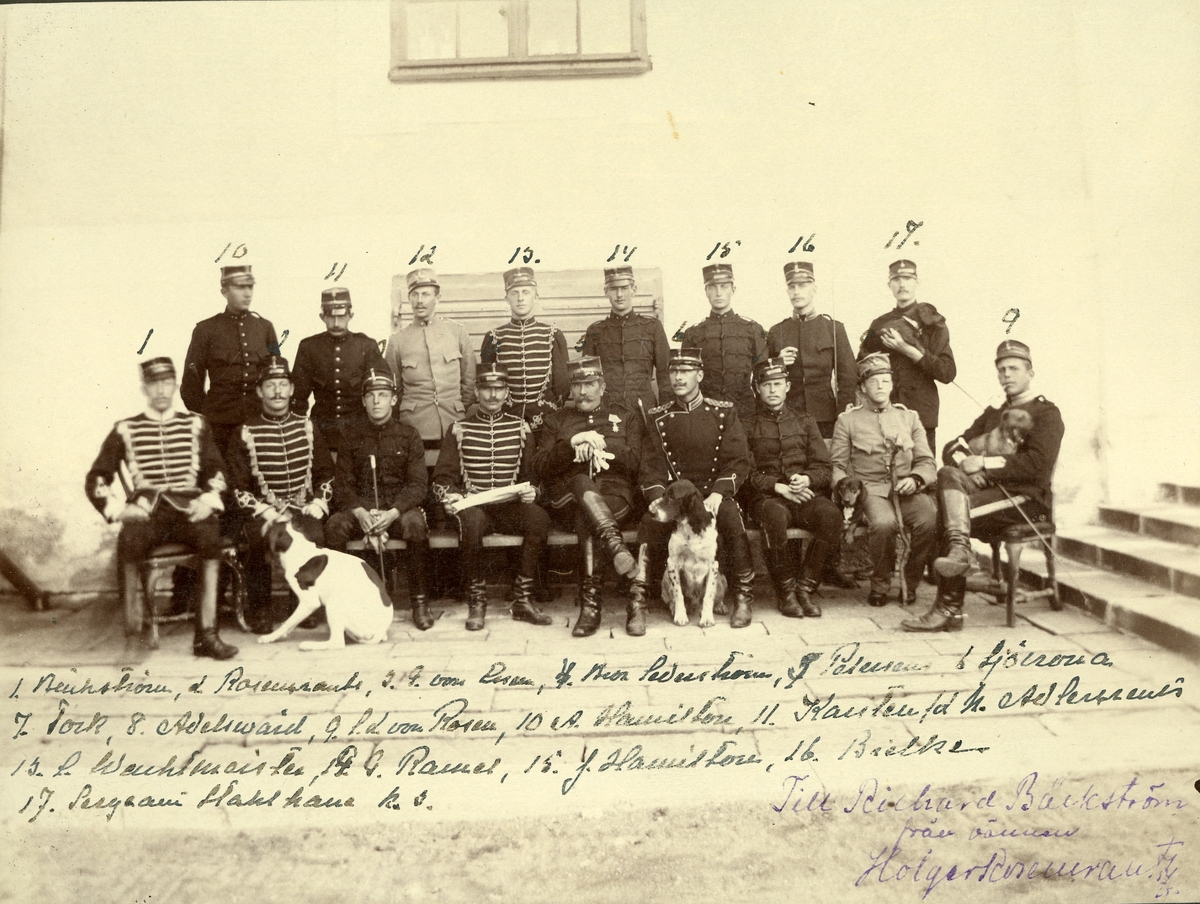 10 11 12 13. 14 15 16 17.
1 2 9
1. Bäckström, 2 Rosencrantz, 3. G. von Essen, 4. Bror Cederström, 5 Petersen 6 Sjöcrona
7. Tock, 8. Adelswärd, 9. von Rosen, 10 A. Hamilton, 11. Karsten, 12 Adlercreutz
13. C. Wachtmeister, 14. G. Ramel, 15. J. Hamilton, 16. Bielke
17. Sergeant Stahlhane k. 3.
Till Richard Bäckström
från vännen
Holger Rosencrantz